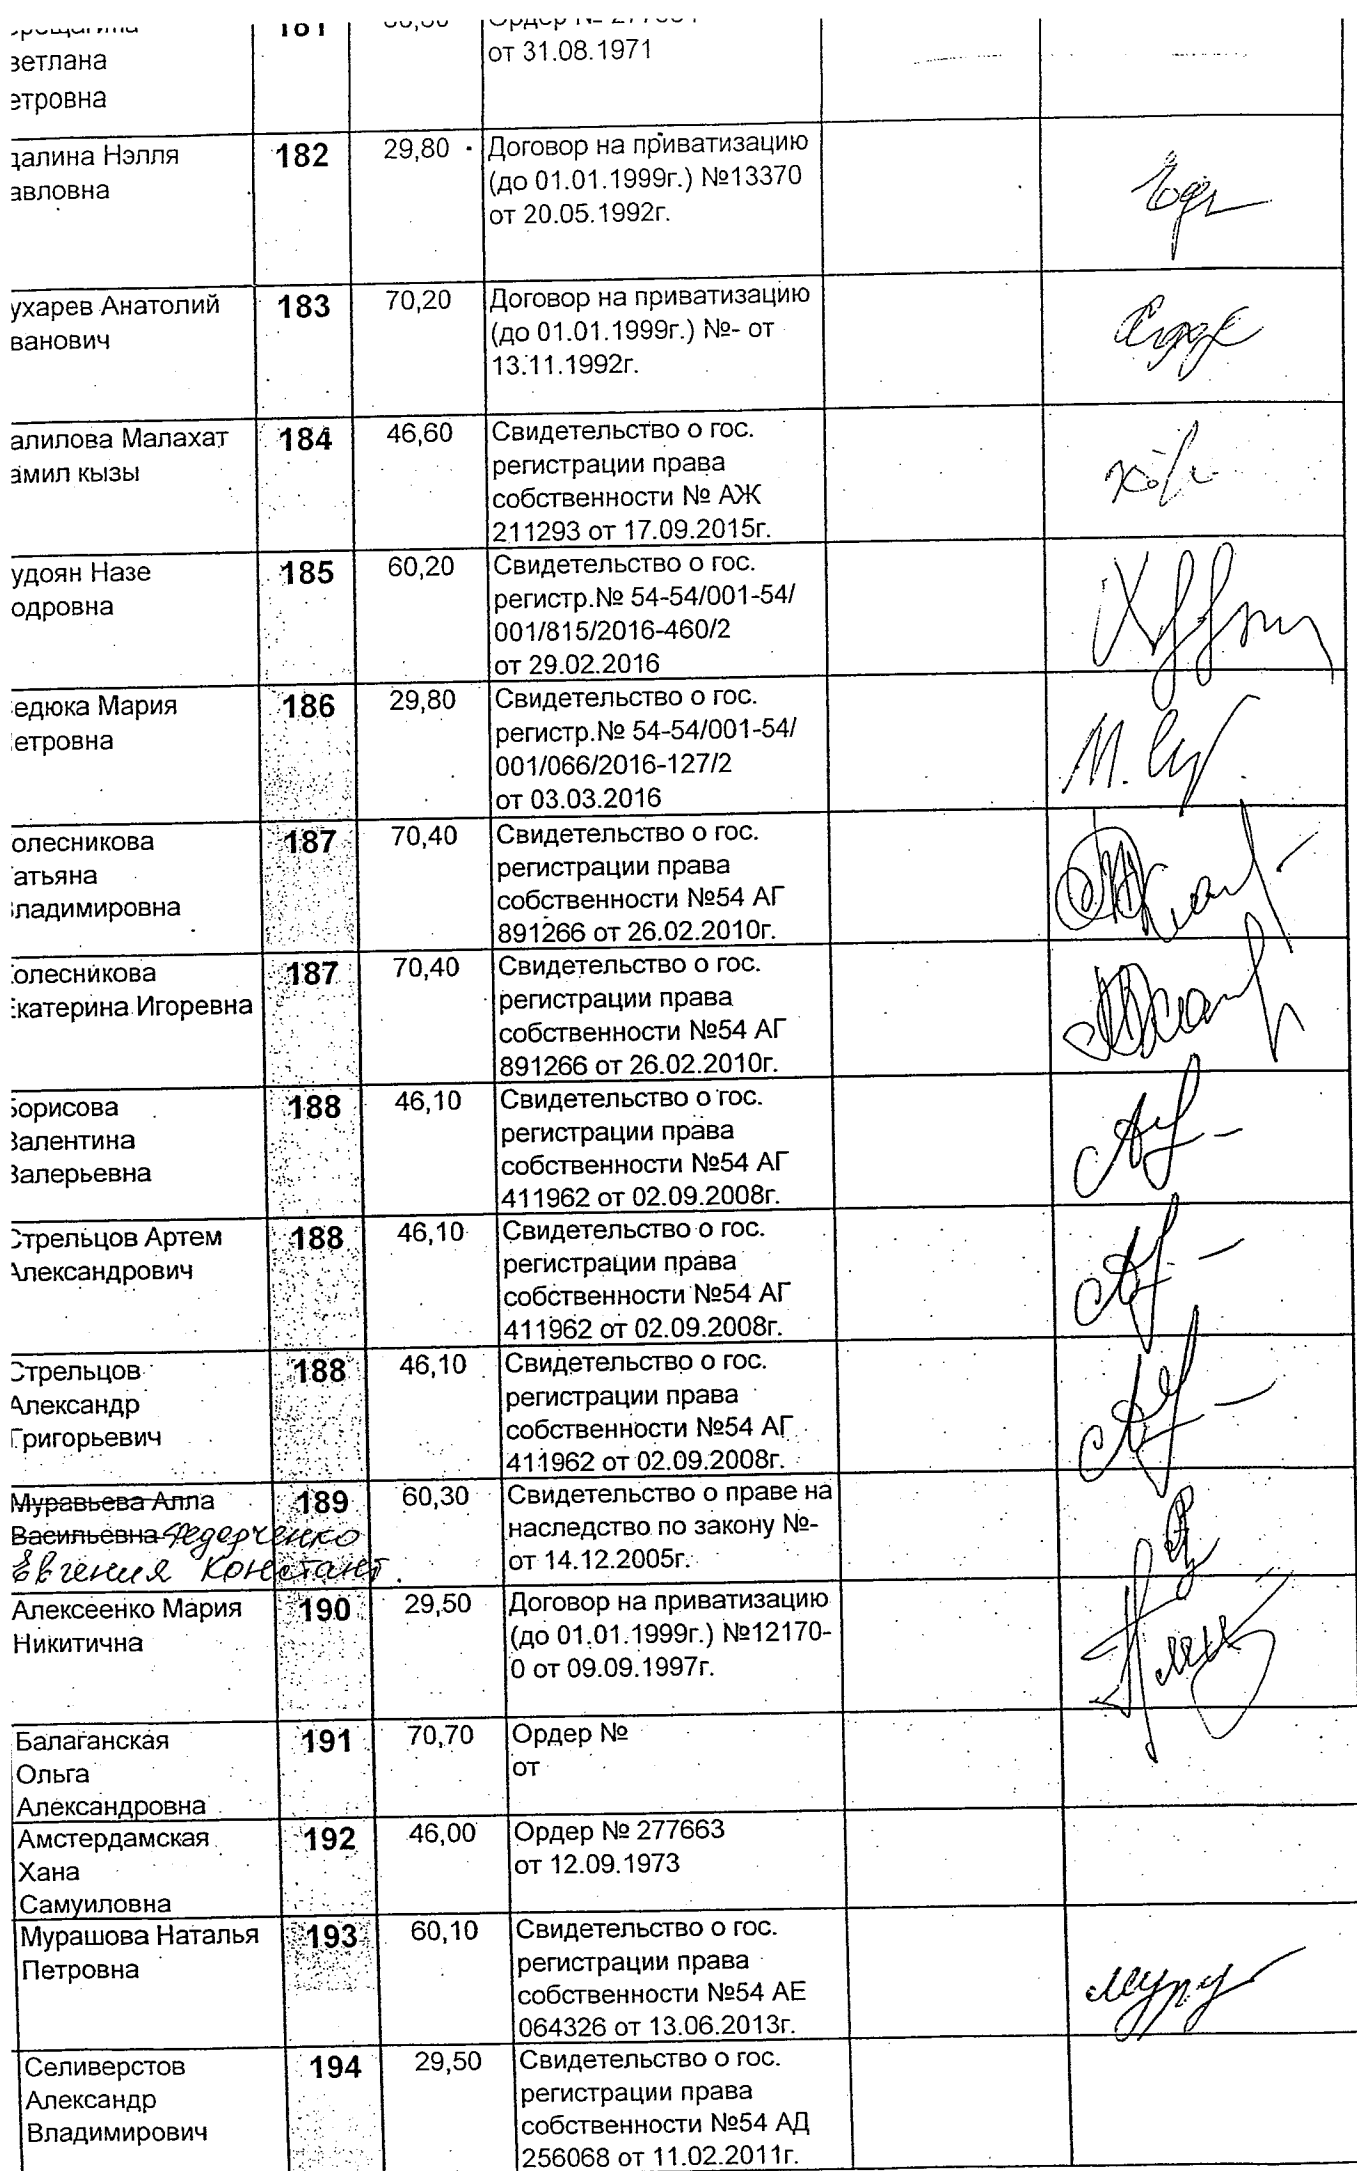 181
от 31.08.1971
ветлана
етровна
далина Нэлля
авловна
182
29,80
Договор на приватизацию
(до 01.01.1999г.) №13370
от 20.05.1992г.
ухарев Анатолий
ванович
183
70,20
Договор на приватизацию
(до 01.01.1999г.) №- от
13.11.1992г.
алилова Малахат
амил кызы
184
46,60
Свидетельство о гос.
регистрации права
собственности № АЖ
211293 от 17.09.2015г.
удоян Назе
одровна
185
60,20
Свидетельство о гос.
регистр.№ 54-54/001-54/
001/815/2016-460/2
от 29.02.2016
едюка Мария
етровна
186
29,80
Свидетельство о гос.
регистр.№ 54-54/001-54/
001/066/2016-127/2
от 03.03.2016
олесникова
атьяна
ладимировна
187
70,40
Свидетельство о гос.
регистрации права
собственности №54 АГ
891266 от 26.02.2010г.
олесникова
катерина Игоревна
187
70,40
Свидетельство о гос.
регистрации права
собственности №54 АГ
891266 от 26.02.2010г.
Борисова
Валентина
Валерьевна
188
46,10
Свидетельство о гос.
регистрации права
собственности №54 АГ
411962 от 02.09.2008г.
Стрельцов Артем
Александрович
188
46,10
Свидетельство о гос.
регистрации права
собственности №54 АГ
411962 от 02.09.2008г.
Стрельцов
Александр
Григорьевич
188
46,10
Свидетельство о гос.
регистрации права
собственности №54 АГ
411962 от 02.09.2008г.
Муравьева Алла
Васильевна Федорченко
Евгения Констант.
189
60,30
Свидетельство о праве на
наследство по закону №-
от 14.12.2005г.
Алексеенко Мария
Никитична
190
29,50
Договор на приватизацию
(до 01.01.1999г.) №12170-
0 от 09.09.1997г.
Балаганская
Ольга
Александровна
191
70,70
Ордер №
от
Амстердамская
Хана
Самуиловна
192
46,00
Ордер № 277663
от 12.09.1973
Мурашова Наталья
Петровна
193
60,10
Свидетельство о гос.
регистрации права
собственности №54 АЕ
064326 от 13.06.2013г.
Селиверстов
Александр
Владимирович
194
29,50
Свидетельство о гос.
регистрации права
собственности №54 АД
256068 от 11.02.2011г.